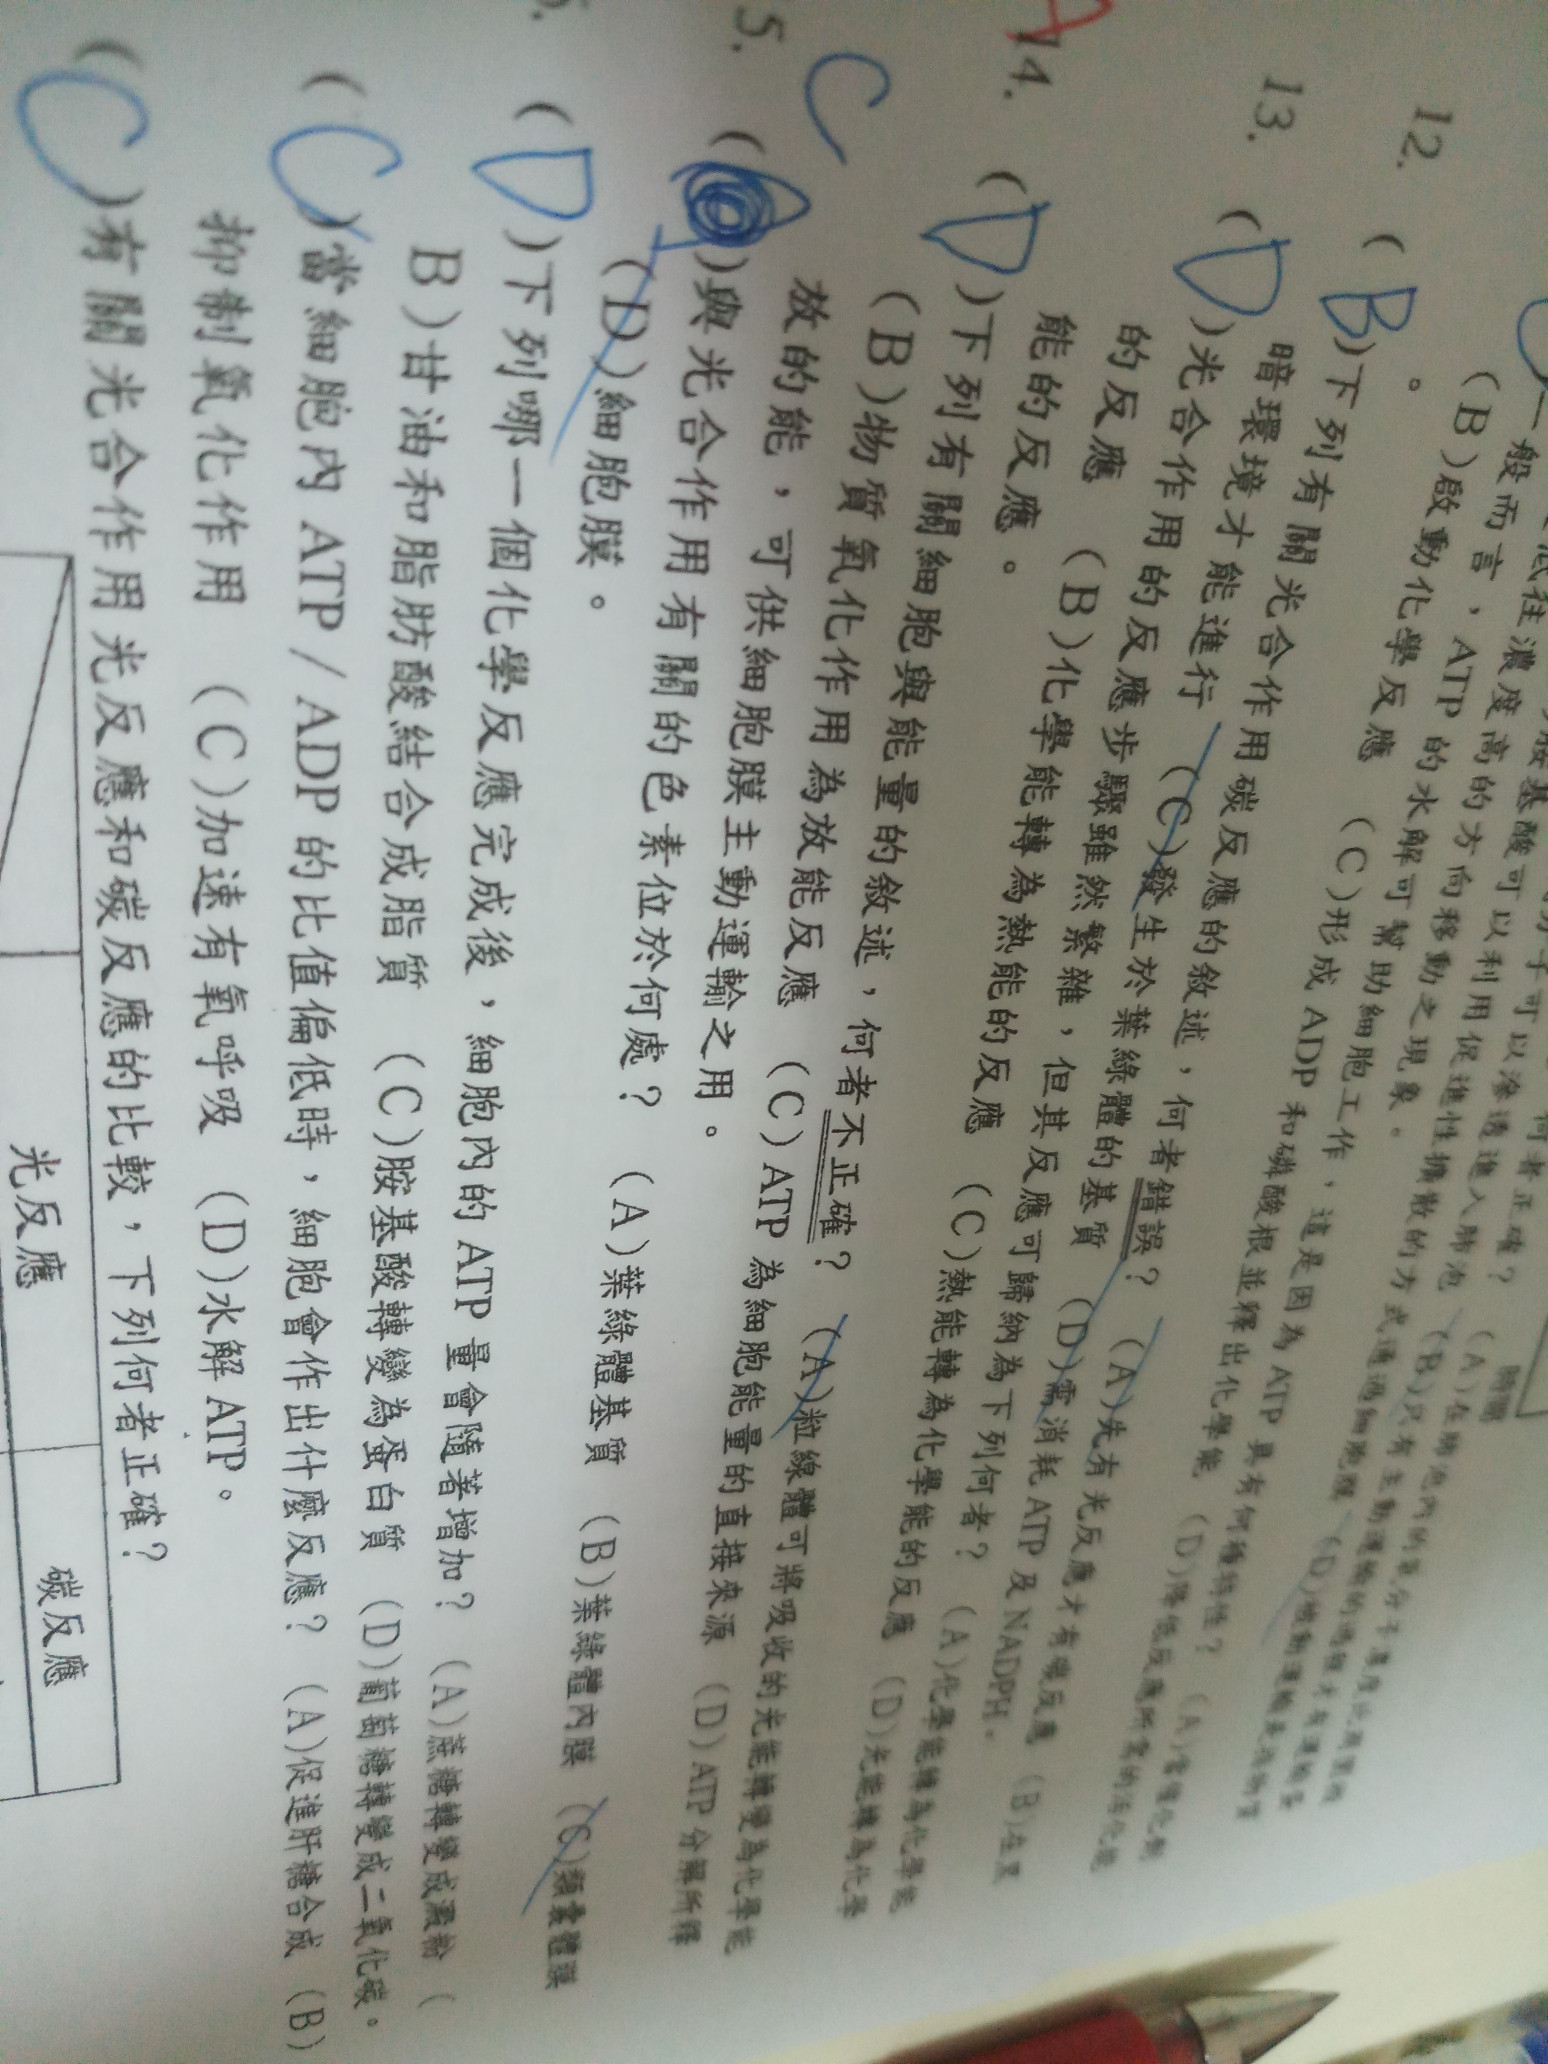 何者正確？ (A)在肺泡內的氧分子濃度比
分子可以滲透進入肺泡 (B)只有主動運輸的過程才有運輸蛋
胺基酸可以利用促進性擴散的方式通過細胞膜 (D)被動運輸是指物質
低往濃度高的方向移動之現象。
一般而言，ATP 的水解可幫助細胞工作，這是因為 ATP 具有何種特性？ (A)當催化劑
(B)啟動化學反應 (C)形成 ADP 和磷酸根並釋出化學能 (D)降低反應所需的活化能
。
12. (B)下列有關光合作用碳反應的敘述，何者錯誤？ (A)先有光反應才有碳反應 (B)在黑
暗環境才能進行 (C)發生於葉綠體的基質 (D)需消耗 ATP 及 NADPH。
13. (D)光合作用的反應步驟雖然繁雜，但其反應可歸納為下列何者？ (A)化學能轉為化學能
的反應 (B)化學能轉為熱能的反應 (C)熱能轉為化學能的反應 (D)光能轉為化學
能的反應。
14. (D)下列有關細胞與能量的敘述，何者不正確？ (A)粒線體可將吸收的光能轉變為化學能
(B)物質氧化作用為放能反應 (C)ATP 為細胞能量的直接來源 (D)ATP 分解所釋
放的能，可供細胞膜主動運輸之用。
5. C ( )與光合作用有關的色素位於何處？ (A)葉綠體基質 (B)葉綠體內膜 (C)類囊體膜
(D)細胞膜。
(D)下列哪一個化學反應完成後，細胞內的 ATP 量會隨著增加？ (A)蔗糖轉變成澱粉 (
B)甘油和脂肪酸結合成脂質 (C)胺基酸轉變為蛋白質 (D)葡萄糖轉變成二氧化碳。
(C)當細胞內 ATP/ADP 的比值偏低時，細胞會作出什麼反應？ (A)促進肝糖合成 (B)
抑制氧化作用 (C)加速有氧呼吸 (D)水解 ATP。
(C)有關光合作用光反應和碳反應的比較，下列何者正確？
光反應 碳反應